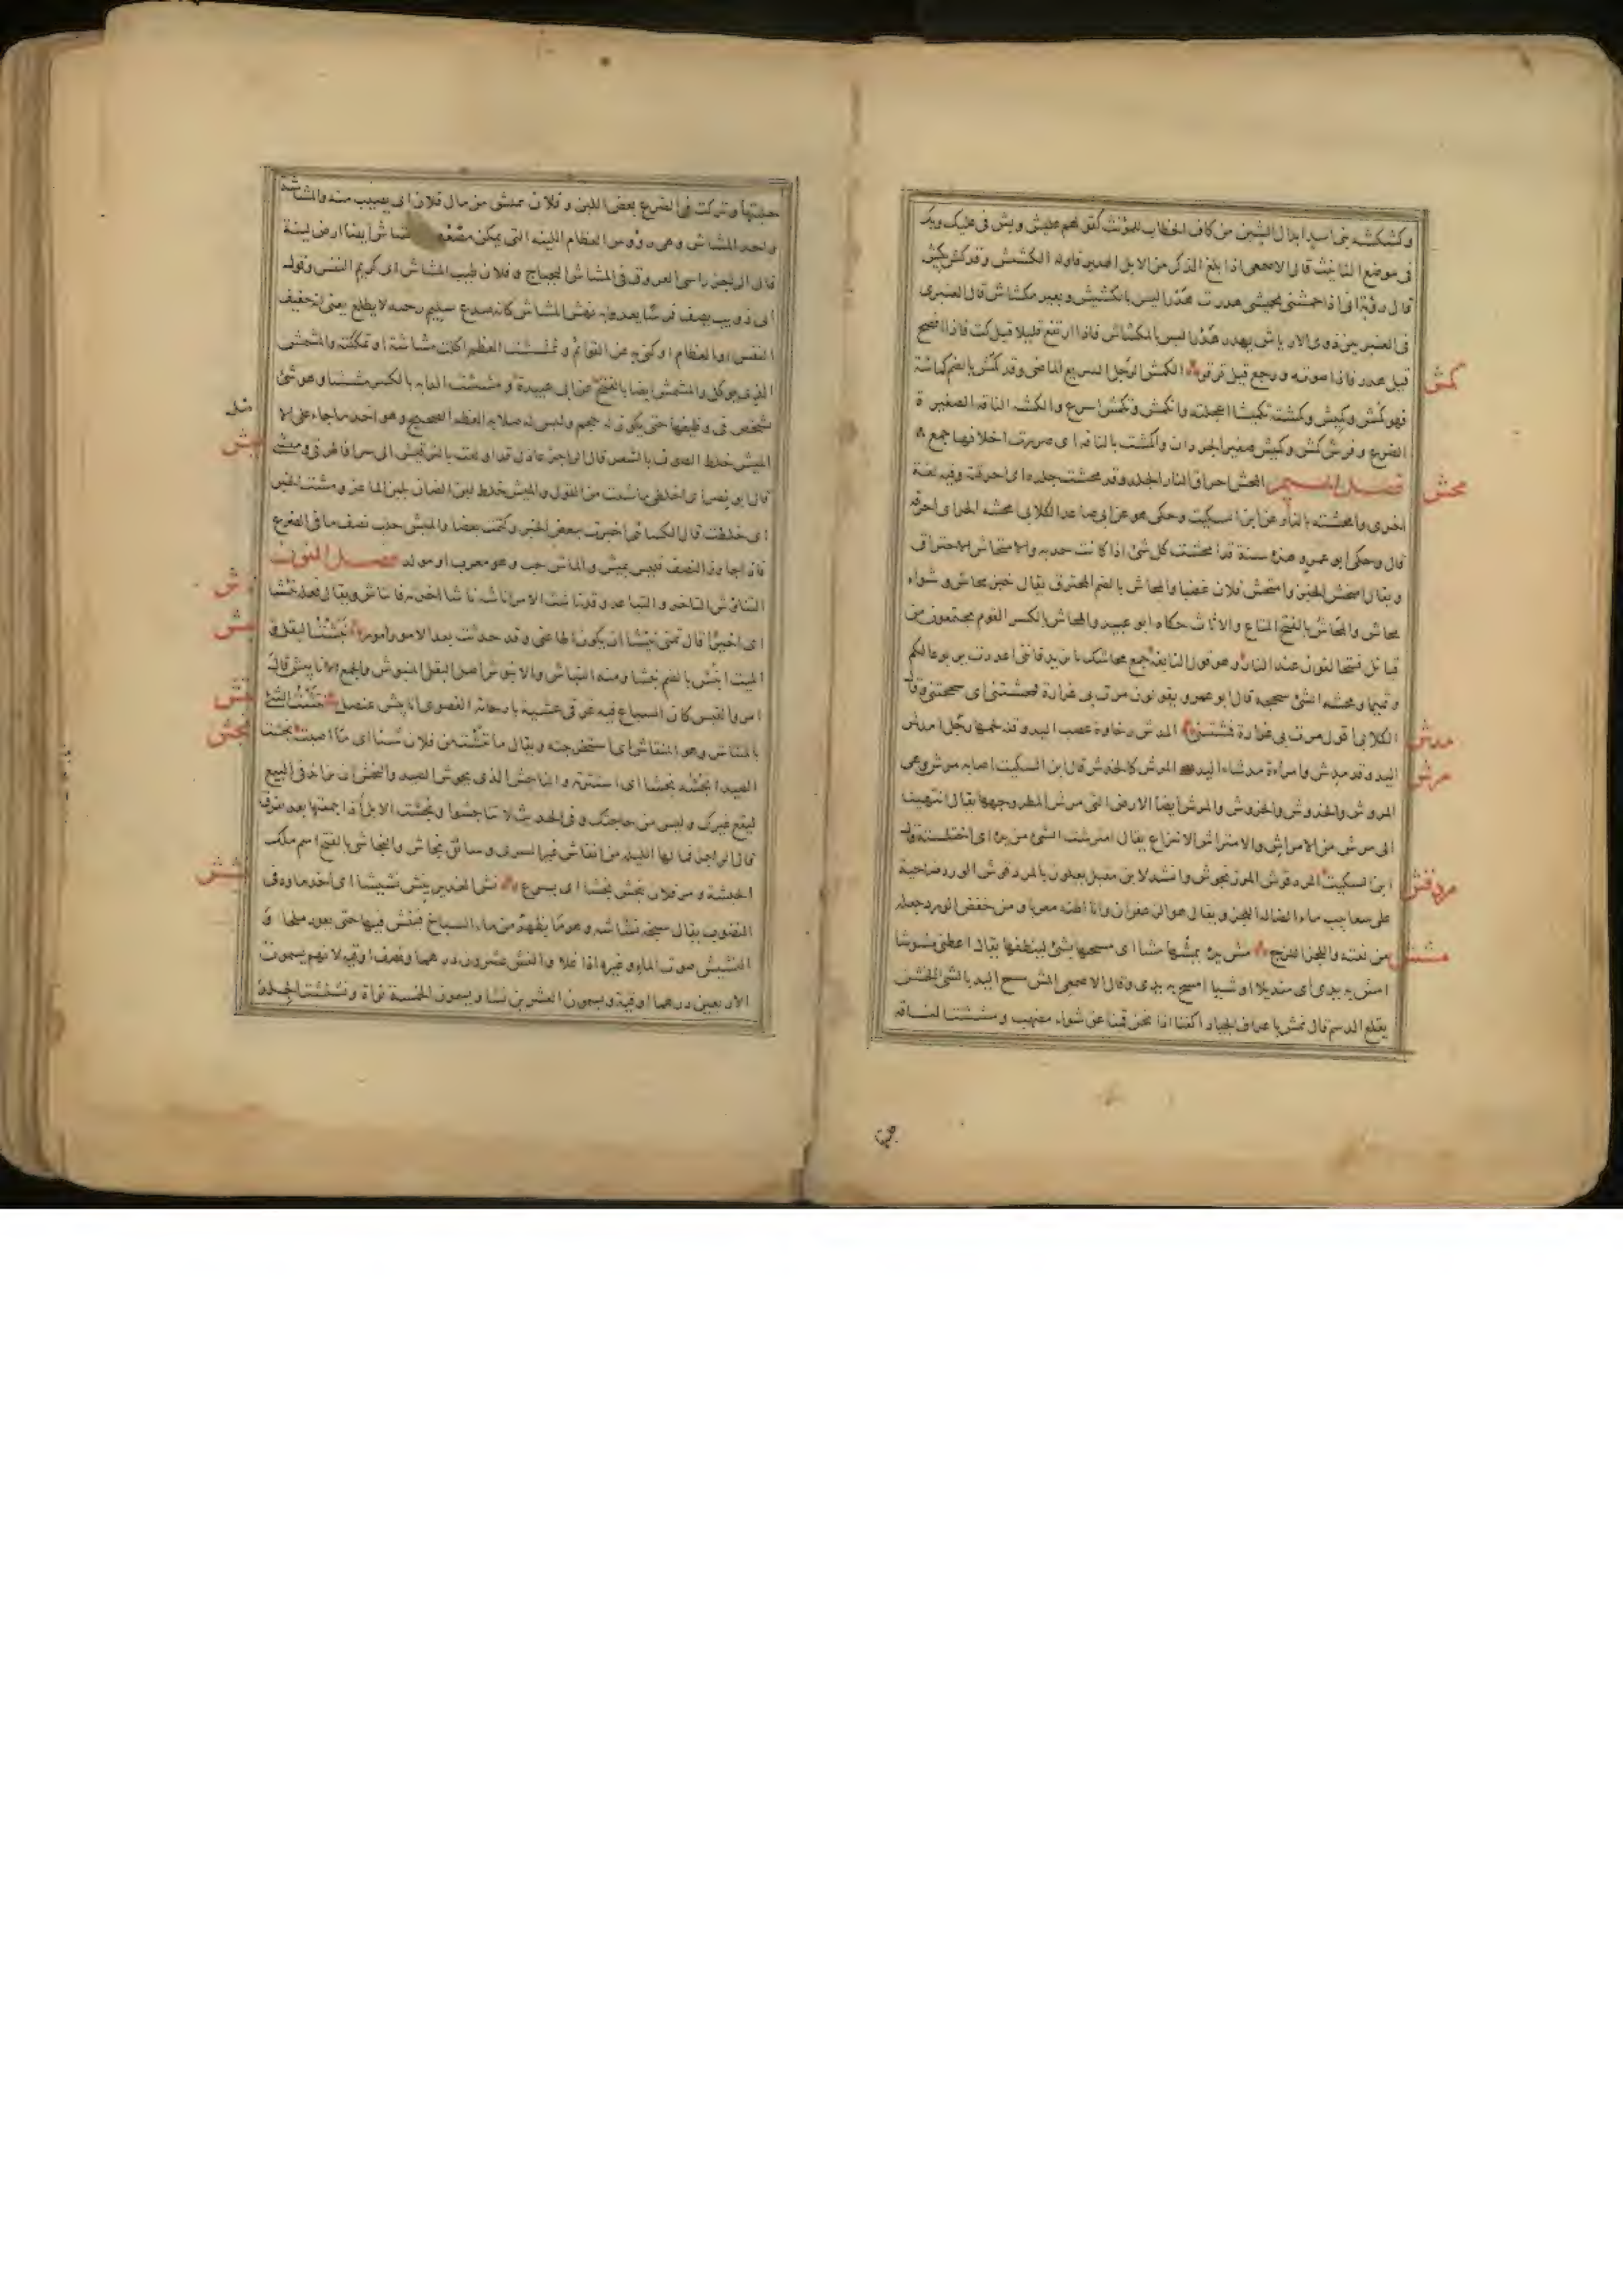 وكشكشة بنى اسد ابدال الشين من كاف الخطاب للمؤنث كقولهم عليش وبش فى عليك وبك
فى موضع التانيث قال الاصمعى اذا بلغ الذكر من الابل الهدير فاوله الكشيش وقد كش يكش
قال رؤبة انى اذا حمشنى تحميشى هدرت هدرا ليس بالكشيش وبعير مكشاش قال العنبرى
فى العنبريين ذوى الارياش يهدر هدرا ليس بالكشاش فاذا ارتفع قليلا قيل كت فاذا افصح
قيل هدر فاذا صوته ورجع قيل قرقر الكمش الرجل السريع الماضى وقد كمش بالضم كماشة
كمش
فهو كمش وكميش وكمشته تكميشا اعجلته وانكمش وتكمش اسرع والكمشة الناقة الصغيرة
الضرع وفرس كمش وكميش صغير الجردان واكمشت بالناقة اى صررت اخلافها جمع
فصل الميم المحش احراق النار الجلد وقد محشت جلده اى احرقته وفيه لغة
محش
اخرى وامحشته بالنار عن ابن السكيت وحكى هو عن ابى صاعد الكلابى محشه الحر اى احرقه
قال وحكى ابو عمرو هذه سنة قد امحشت كل شئ اذا كانت جدبة والامتحاش الاحتراق
ويقال امتحش الخبز وامتحش فلان غضبا والمحاش بالضم المحترق يقال خبز محاش وشواء
محاش والمحاش بالفتح المتاع والاثاث حكاه ابو عبيد والمحاش بالكسر القوم يجتمعون من
قبائل فيتحالفون عند النار وهو قول النابغة جمع محاشك يا يزيد فاننى اعددت يربوعا لكم
وتميما ومحشه الشئ سحجه قال ابو عمرو يقولون مرت بى غرارة فمحشتنى اى سحجتنى وقال
الكلابى اقول مرت بى غرارة فمشنتنى المدش رخاوة عصب اليد وقلة لحمها رجل امدش
مدش
اليد وقد مدش وامراة مدشاء اليد المرش كالخدش قال ابن السكيت اصابه مرش وهى
مرش
المروش والخدوش والخروش والمرش ايضا الارض التى مرش المطر وجهها يقال انتهينا
الى مرش من الامراش والامتراش الانتزاع يقال امترشت الشئ من يده اى اختلسته
ابن السكيت المردقوش المرزنجوش وانشد لابن مقبل يعلون بالمردقوش الورد ضاحية
مردقش
على سعابيب ماء الضالة اللجز ويقال هو الزعفران وانا اظنه معربا ومن خفض الورد جعله
من نعته واللجز اللزج مش يده يمشها مشا اى مسحها بشئ لينظفها يقال اعطنى مشوشا
مشش
امش به يدى اى منديلا او شيئا امسح به يدى وقال الاصمعى المش مسح اليد بالشئ الخشن
يقلع الدسم قال نمش باعراف الجياد اكفنا اذا نحن قمنا عن شواء مضهب ومششت الناقة
حلبتها وتركت فى الضرع بعض اللبن وفلان يمش من مال فلان اى يصيب منه والمشاشة
واحد المشاش وهى رؤوس العظام اللينة التى يمكن مضغها ايضا ارض لينة
قال الراجز راسى العروق فى المشاش البجباج وفلان طيب المشاش اى كريم النفس وقول
ابى ذويب يصف فرسا يعدو به نهش المشاش كانه صدع سليم رجعه لا يظلع يعنى انه خفيف
النفس او العظام او كنى به عن القوائم وتمششت العظم اكلت مشاشه او تمككته والمشمش
الذى يوكل والمشمش ايضا بالفتح عن ابى عبيدة ومششت الدابة بالكسر مششا وهو شئ
يشخص فى وظيفها حتى يكون له حجم وليس له صلابة العظم الصحيح وهو احد ما جاء على الاصل
الميش خلط الصوف بالشعر قال الراجز عاذل قد اولعت بالترقيش الى سرا فاطرقى وميشى
ميش
قال ابو نصر اى اخلطى ما شئت من القول والميش خلط لبن الضان بلبن الماعز ومشت الخبر
اى خلطت قال الكسائى اخبرت ببعض الخبر وكتمت بعضا والميش حلب نصف ما فى الضرع
فاذا جاوز النصف فليس بميش والماش حب وهو معرب او مولد فصل النون
التناؤش التاخر والتباعد وقد ناشت الامر اناشه ناشا اخرته فانتاش ويقال فعله نئيشا
نأش
اى اخيرا قال تمنى نئيشا ان يكون اطاعنى وقد حدثت بعد الامور امور نبشت البقل و
نبش
الميت انبش بالضم نبشا ومنه النباش والانبوش اصل البقل المنبوش والجمع الانابيش قال
امرؤ القيس كان السباع فيه غرقى عشية بارجائه القصوى انابيش عنصل نتشت الشئ
نتش
بالمنتاش وهو المنقاش اى استخرجته ويقال ما نتشت من فلان شيئا اى ما اصبت نجشت
نجش
الصيد انجشه نجشا اى استثرته والناجش الذى يحوش الصيد والنجش ان تزايد فى البيع
ليقع غيرك وليس من حاجتك وفى الحديث لا تناجشوا ونجشت الابل اذا جمعتها بعد تفرقة
قال الراجز فما لها الليلة من انفاش غير السرى وسائق نجاش والنجاشى بالفتح اسم ملك
الحبشة ومر فلان ينجش نجشا اى يسرع نش الغدير ينش نشيشا اى اخذ ماؤه فى
نشش
النضوب يقال سبخة نشاشة وهو ما يظهر من ماء السباخ فينش فيها حتى يعود ملحا و
النشيش صوت الماء وغيره اذا غلا والنش عشرون درهما ونصف اوقية لانهم يسمون
الاربعين درهما اوقية ويسمون العشرين نشا ويسمون الخمسة نواة ونششت الجلد